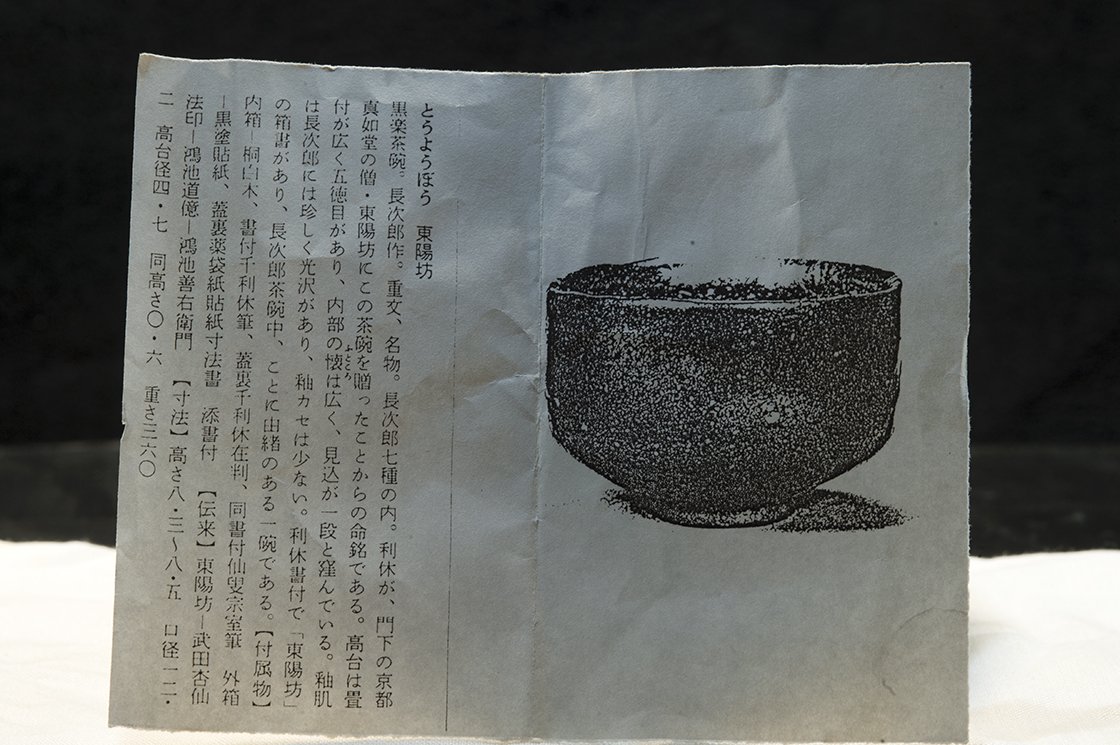 とうようぼう 東陽坊
黒楽茶碗。長次郎作。重文、名物。長次郎七種の内。利休が、門下の京都
真如堂の僧・東陽坊にこの茶碗を贈ったことからの命銘である。高台は畳
付が広く五徳目があり、内部の懐は広く、見込が一段と窪んでいる。釉肌
ふところ
は長次郎には珍しく光沢があり、釉カセは少ない。利休書付で「東陽坊」
の箱書があり、長次郎茶碗中、ことに由緒のある一碗である。【付属物】
内箱―桐白木、書付千利休筆、蓋裏千利休在判、同書付仙叟宗室筆 外箱
―黒塗貼紙、蓋裏薬袋紙貼紙寸法書 添書付 【伝来】東陽坊―武田杏仙
法印―鴻池道億―鴻池善右衛門 【寸法】高さ八・三〜八・五 口径一二・
二 高台径四・七 同高さ〇・六 重さ三六〇